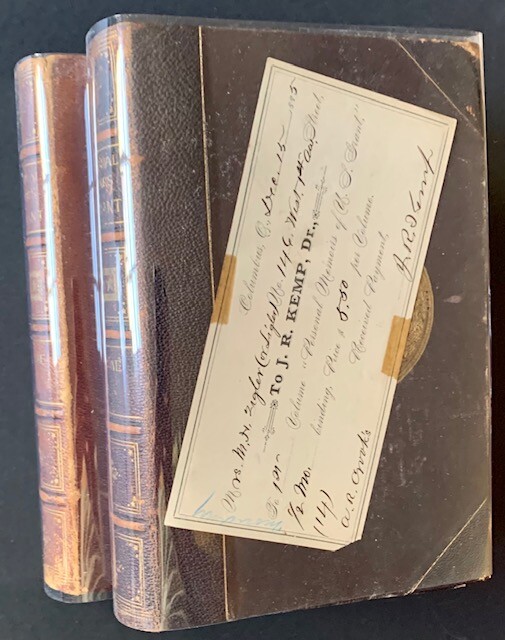 Columbus, O., Dec 15 1885
Mrs. M. H. Zegler (or Sigler) No. 114 E. West 1st Ave Street,
To J. R. KEMP, Dr.,
To 1st Volume "Personal Memoirs of U. S. Grant,"
1/2 Mo. binding, Price $ 5.50 per Volume.
(114) Received Payment,
A. R. Crooks J. R. Kemp